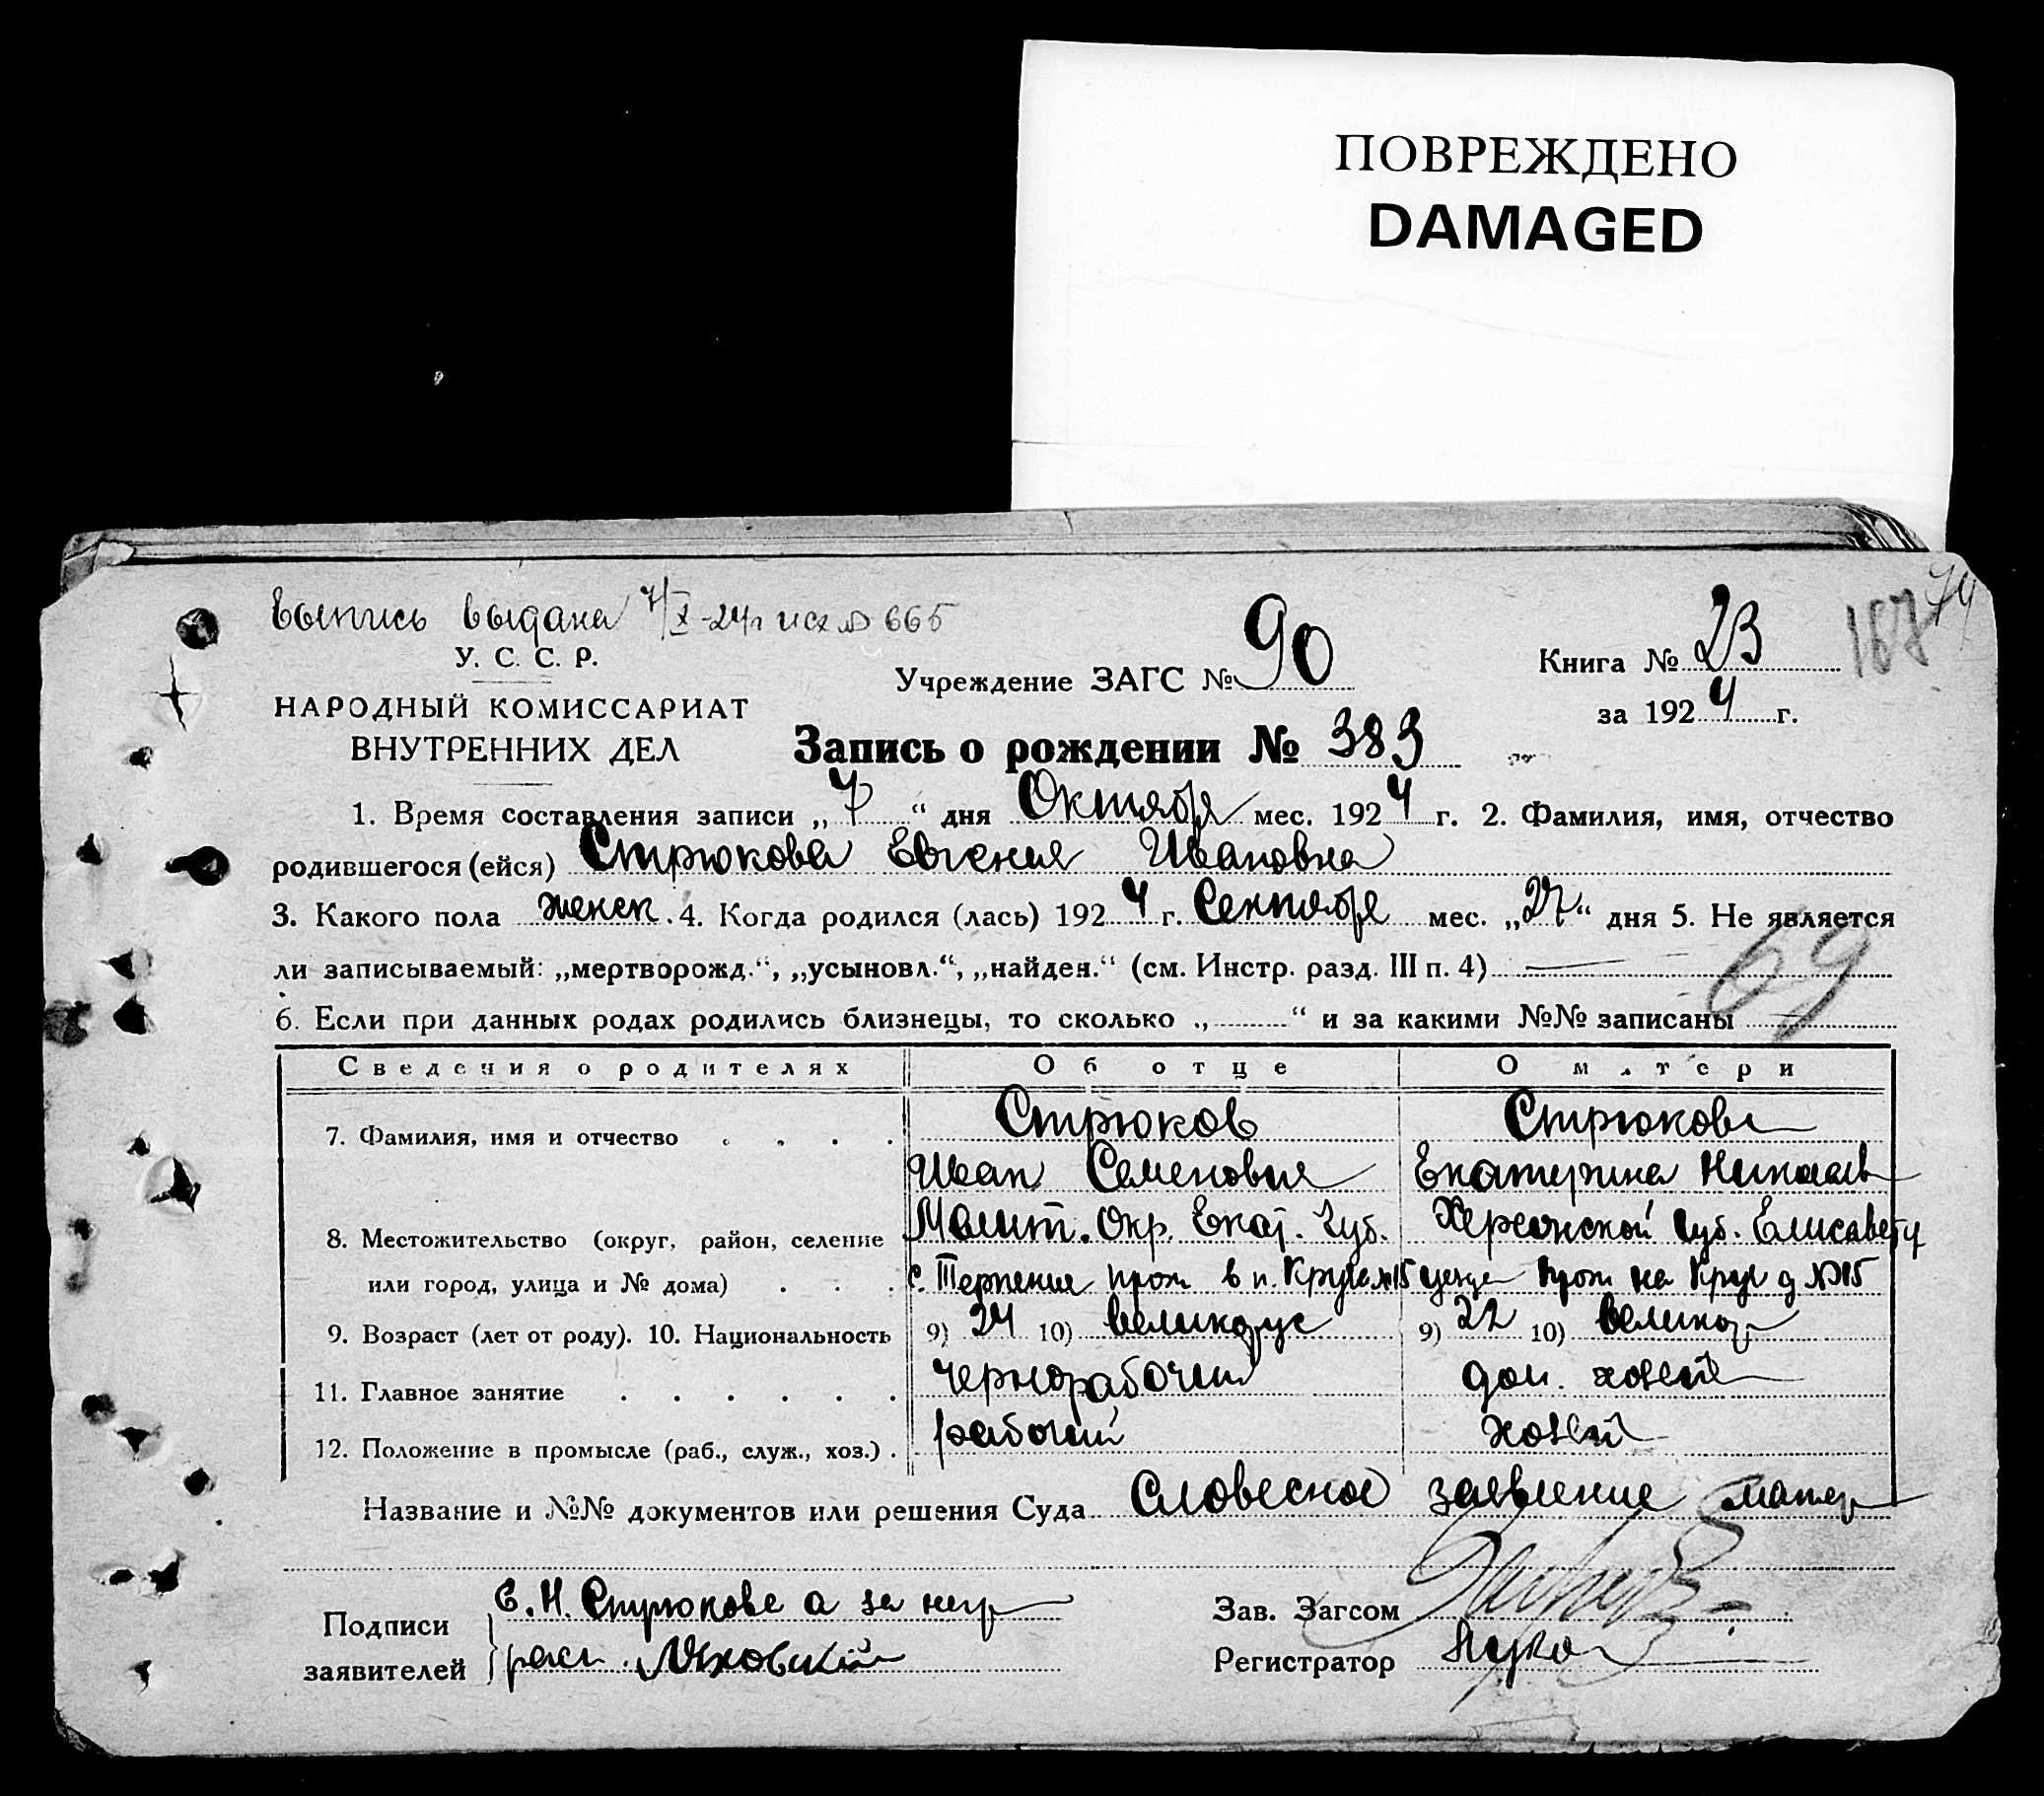 ПОВРЕЖДЕНО
DAMAGED
Выпись выдана 7/X-24г исх № 665
187 74
У. С. С. Р.
НАРОДНЫЙ КОМИССАРИАТ
ВНУТРЕННИХ ДЕЛ
Учреждение ЗАГС № 90
Книга № 23
за 1924 г.
Запись о рождении № 383
1. Время составления записи „7“ дня Октября мес. 1924 г. 2. Фамилия, имя, отчество
родившегося (ейся) Стрюкова Евгения Ивановна
3. Какого пола женск. 4. Когда родился (лась) 1924 г. Сентября мес. „27“ дня 5. Не является
ли записываемый: „мертворожд.“, „усыновл.“, „найден.“ (см. Инстр. разд. III п. 4) —
69
6. Если при данных родах родились близнецы, то сколько „ “ и за какими №№ записаны
Сведения о родителях Об отце О матери
7. Фамилия, имя и отчество . . . . Стрюков Стрюкова
Иван Семенович Екатерина Николаев
8. Местожительство (округ, район, селение Мелит. Окр. Екат. Губ. Херсонской Губ. Елисаветг
или город, улица и № дома) . . . с. Терпения прож в п. Круга №15 уезда прож на Круг д №15
9. Возраст (лет от роду). 10. Национальность 9) 24 10) великорус 9) 22 10) великор
11. Главное занятие . . . . . . чернорабочий дом. хозяй
12. Положение в промысле (раб., служ., хоз.) . рабочий хозяй
Название и №№ документов или решения Суда Словесное заявление матер
Подписи заявителей
Е. Н. Стрюкова а за негр
расп. Ляховский
Зав. Загсом
Регистратор